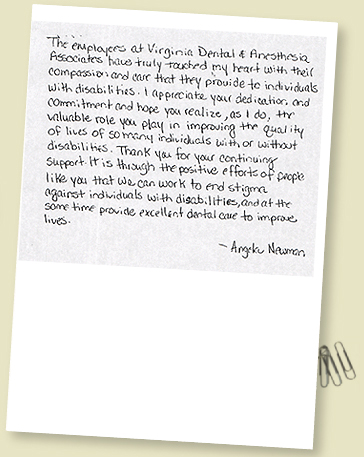 The employees at Virginia Dental & Anesthesia
Associates have truly touched my heart with their
compassion and care that they provide to individuals
with disabilities. I appreciate your dedication and
commitment and hope you realize, as I do, the
valuable role you play in improving the quality
of lives of so many individuals with or without
disabilities. Thank you for your continuing
support. It is through the positive efforts of people
like you that we can work to end stigma
against individuals with disabilities, and at the
same time provide excellent dental care to improve
lives.
- Angela Newman